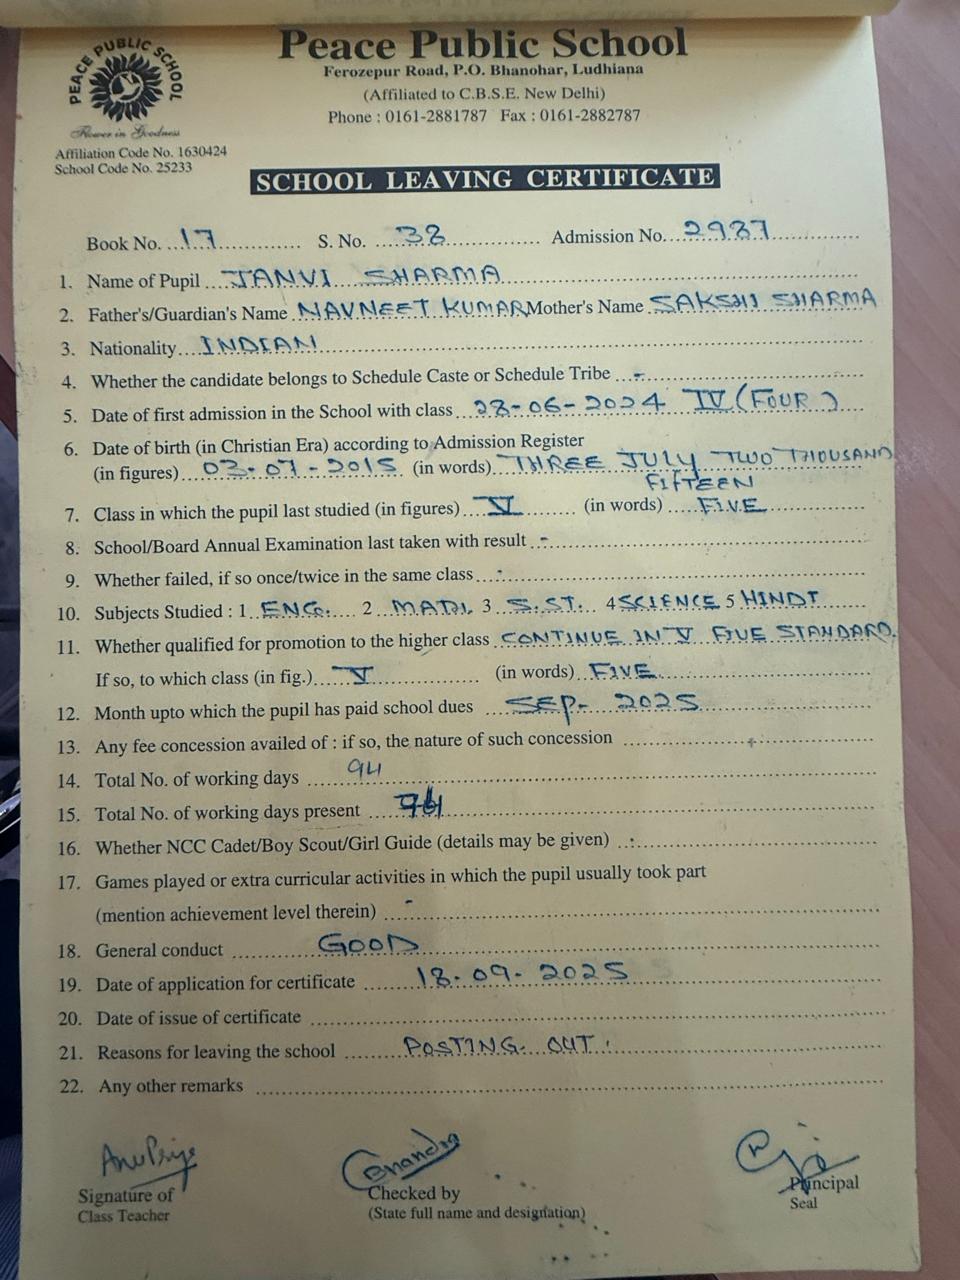 PEACE PUBLIC SCHOOL
Flower in Goodness
Affiliation Code No. 1630424
School Code No. 25233
Peace Public School
Ferozepur Road, P.O. Bhanohar, Ludhiana
(Affiliated to C.B.S.E. New Delhi)
Phone : 0161-2881787 Fax : 0161-2882787
SCHOOL LEAVING CERTIFICATE
Book No. 17 S. No. 38 Admission No. 2987
1. Name of Pupil JANVI SHARMA
2. Father's/Guardian's Name NAVNEET KUMAR Mother's Name SAKSHI SHARMA
3. Nationality INDIAN
4. Whether the candidate belongs to Schedule Caste or Schedule Tribe -
5. Date of first admission in the School with class 28-06-2024 IV (FOUR)
6. Date of birth (in Christian Era) according to Admission Register
(in figures) 03-07-2015 (in words) THREE JULY TWO THOUSAND
FIFTEEN
7. Class in which the pupil last studied (in figures) V (in words) FIVE
8. School/Board Annual Examination last taken with result -
9. Whether failed, if so once/twice in the same class -
10. Subjects Studied : 1 ENG. 2 MATH 3 S.ST. 4 SCIENCE 5 HINDI
11. Whether qualified for promotion to the higher class CONTINUE IN V FIVE STANDARD.
If so, to which class (in fig.) V (in words) FIVE
12. Month upto which the pupil has paid school dues SEP- 2025
13. Any fee concession availed of : if so, the nature of such concession
14. Total No. of working days 94
15. Total No. of working days present
16. Whether NCC Cadet/Boy Scout/Girl Guide (details may be given)
17. Games played or extra curricular activities in which the pupil usually took part
(mention achievement level therein) -
18. General conduct GOOD
19. Date of application for certificate 18-09-2025
20. Date of issue of certificate
21. Reasons for leaving the school POSTING OUT.
22. Any other remarks
AnuPriya
Signature of
Class Teacher
Chandra
Checked by
(State full name and designation)
Principal
Seal